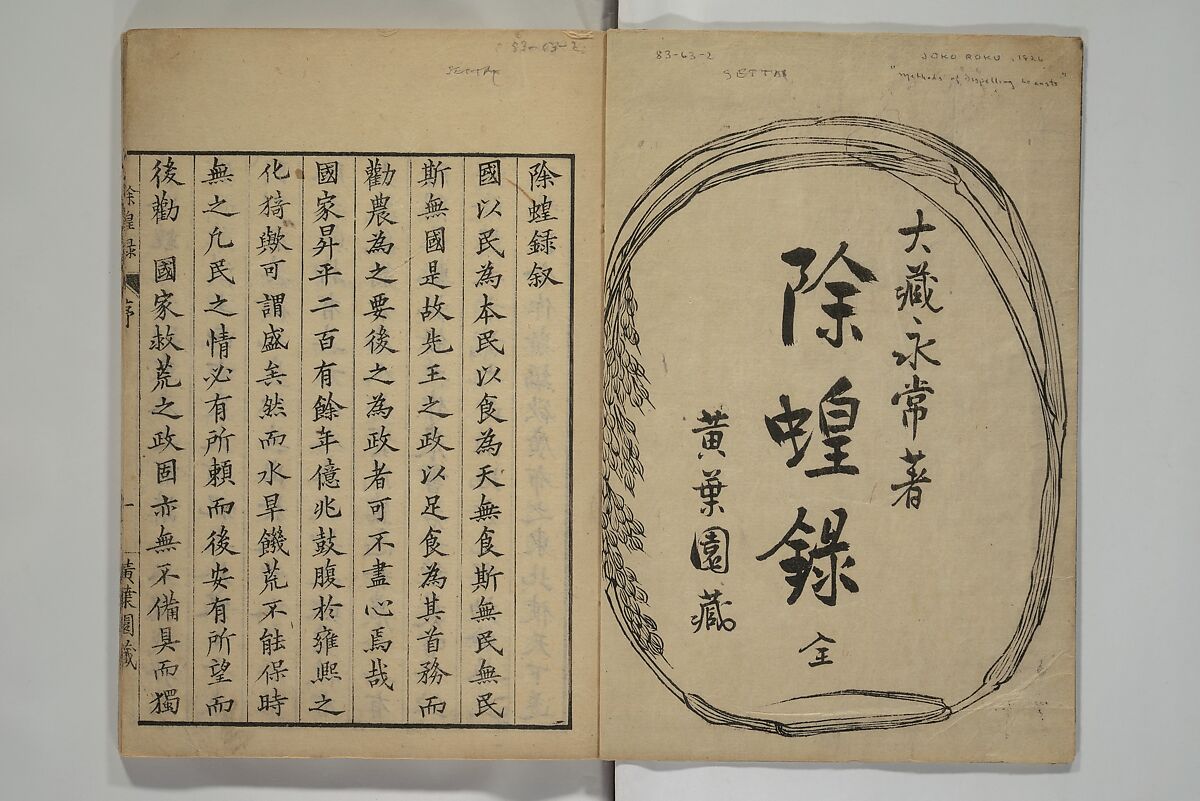 83-63-2
JOKO ROKU, 1826
SETTAI
"Methods of dispelling locusts"
大藏永常著
除蝗錄
全
黃葉園藏
83-63-2
除蝗録叙
國以民為本民以食為天無食斯無民無民
斯無國是故先王之政以足食為其首務而
勸農為之要後之為政者可不盡心焉哉
國家昇平二百有餘年億兆鼓腹於雍熙之
化猗歟可謂盛矣然而水旱饑荒不能保時
無之凡民之情必有所頼而後安有所望而
後勸國家救荒之政固亦無不備具而獨
除蝗录
序
一
黃葉園藏